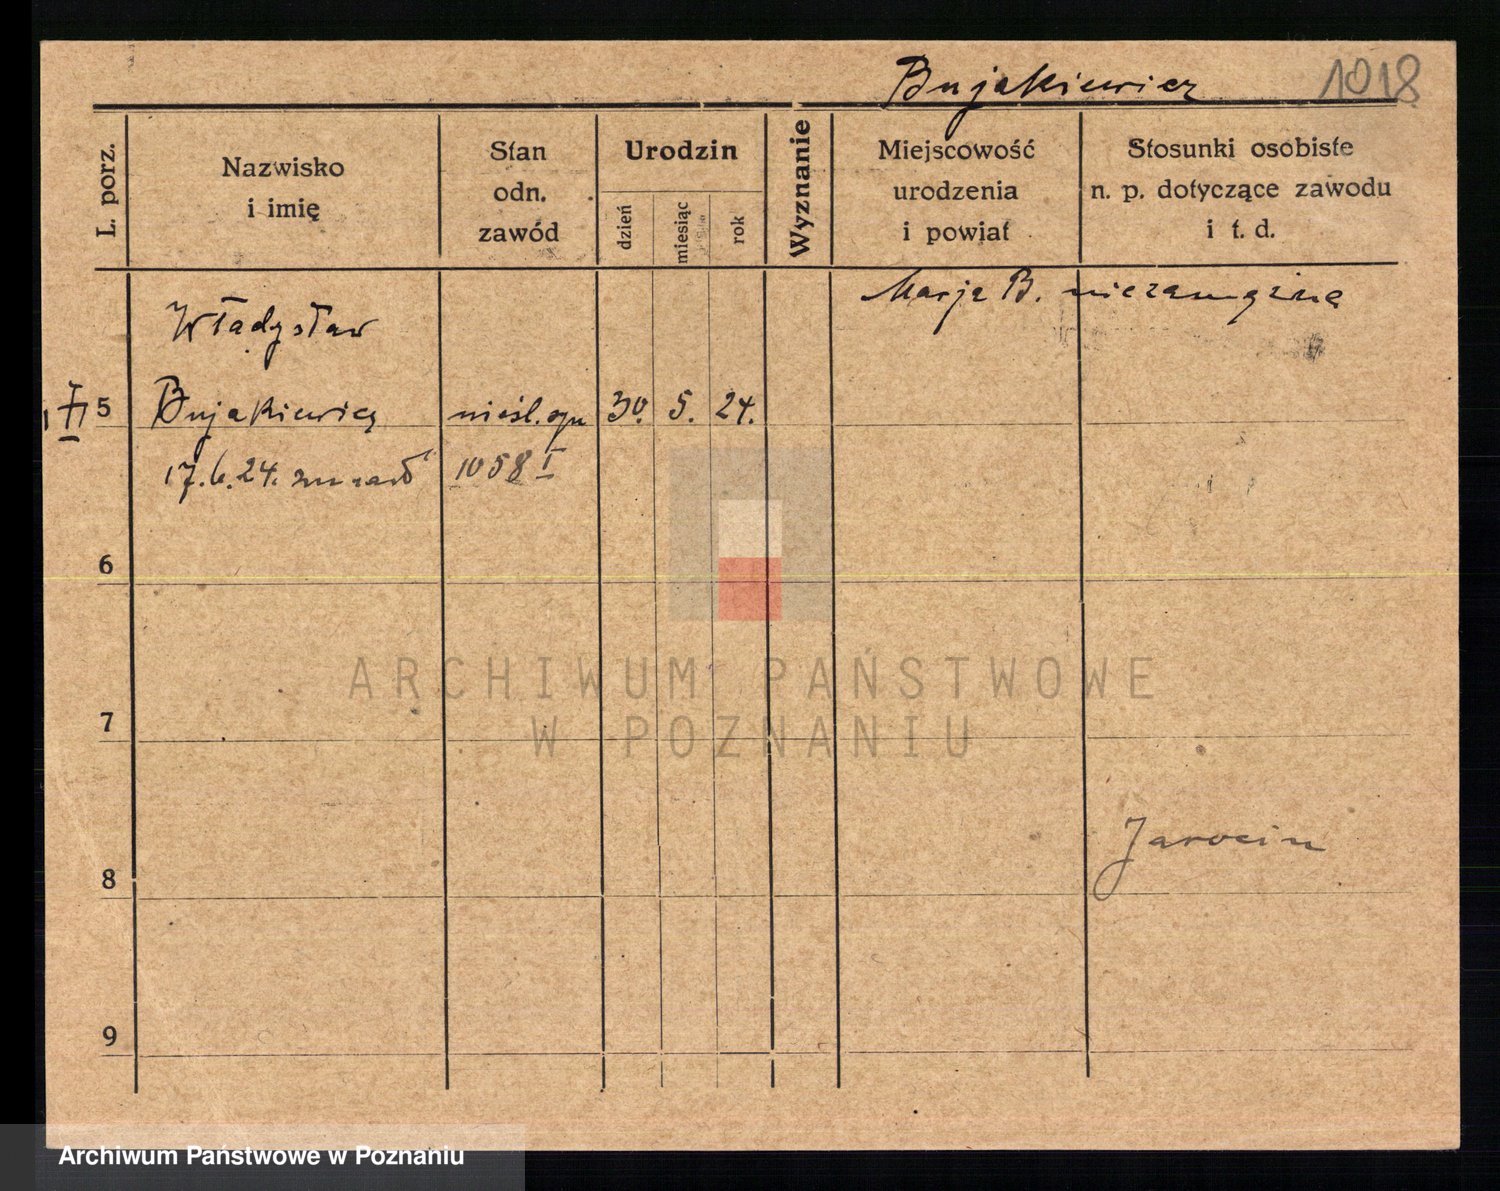 Bujakiewicz 1018
L. porz.
Nazwisko
i imię
Stan
odn.
zawód
Urodzin
dzień
miesiąc
rok
Wyznanie
Miejscowość
urodzenia
i powiat
Stosunki osobiste
n. p. dotyczące zawodu
i t. d.
Marja B. niezamężna
Władysław
5 Bujakiewicz nieśl. syn 30. 5. 24.
17.6.24. zmarł 1058 I
6
7
8
Jarocin
9
ARCHIWUM PAŃSTWOWE
W POZNANIU
Archiwum Państwowe w Poznaniu